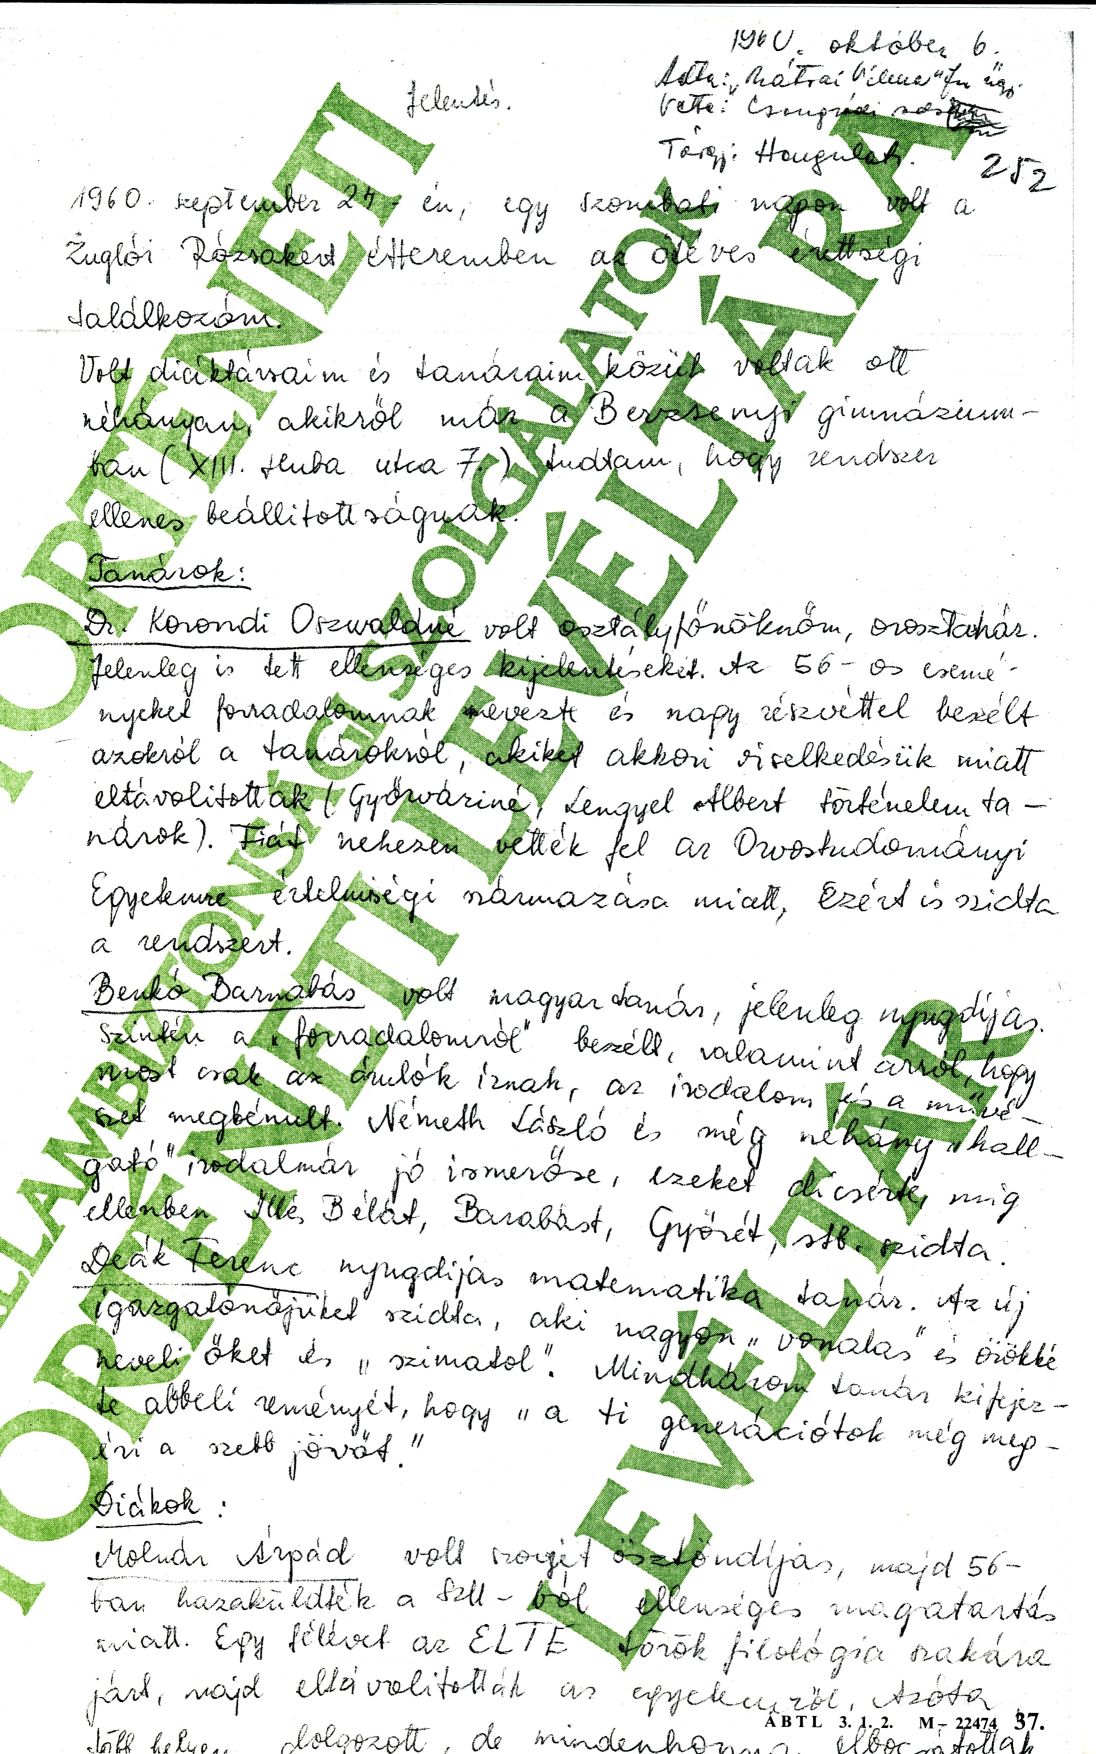 1960. október 6.
Adta: „Mátrai Vilma" fn. ügy.
Vette: Csongrádi
Jelentés.
Tárgy: Hangulatj.
252
1960. szeptember 24-én, egy szombati napon volt a
Zuglói Rózsakert étteremben az ötéves érettségi
találkozóm.
Volt diáktársaim és tanáraim közül voltak ott
néhányan, akikről már a Berzsenyi gimnázium-
ban (XIII. utca 7.) tudtam, hogy rendszer
ellenes beállitottságuak.
Tanárok:
Dr. Korondi Oszwaldné volt osztályfőnöknőm, orosztanár.
Jelenleg is tett ellenséges kijelentéseket. Az 56-os esemé-
nyeket forradalomnak nevezte és nagy részvéttel beszélt
azokról a tanárokról, akiket akkori viselkedésük miatt
eltávolitottak (Győrváriné, Lengyel Albert történelem ta-
nárok). Fiát nehezen vették fel az Orvostudományi
Egyetemre értelmiségi származása miatt, Ezért is szidta
a rendszert.
Benkó Barnabás volt magyar tanár, jelenleg nyugdíjas.
Szintén a „forradalomról" beszélt, valamint arról, hogy
most csak az árulók irnak, az irodalom és a művé-
szet megbénult. Németh László és még néhány „hall-
gató" irodalmár jó ismerőse, ezeket dicsérte, mig
ellenben Illés Bélát, Barabást, Győrét, stb. szidta.
Deák Ferenc nyugdíjas matematika tanár. Az új
igazgatónőjüket szidta, aki nagyon „vonalas" és örökké
neveli őket és „szimatol". Mindhárom tanár kifejez-
te abbeli reményét, hogy „a ti generációtok még meg-
éri a szebb jövőt."
Diákok:
Molnár Árpád volt szovjet ösztöndíjas, majd 56-
ban hazaküldték a SzU-ból ellenséges magatartás
miatt. Egy félévet az ELTE török filológia szakára
járt, majd eltávolitották az egyetemről. Azóta
több helyen dolgozott, de mindenhonnan elbocsátották
ÁBTL 3.1.2. M-22474 37.
TÖRTÉNETI
ÁLLAMBIZTONSÁGI SZOLGÁLATOK
TÖRTÉNETI LEVÉLTÁRA
LEVÉLTÁR